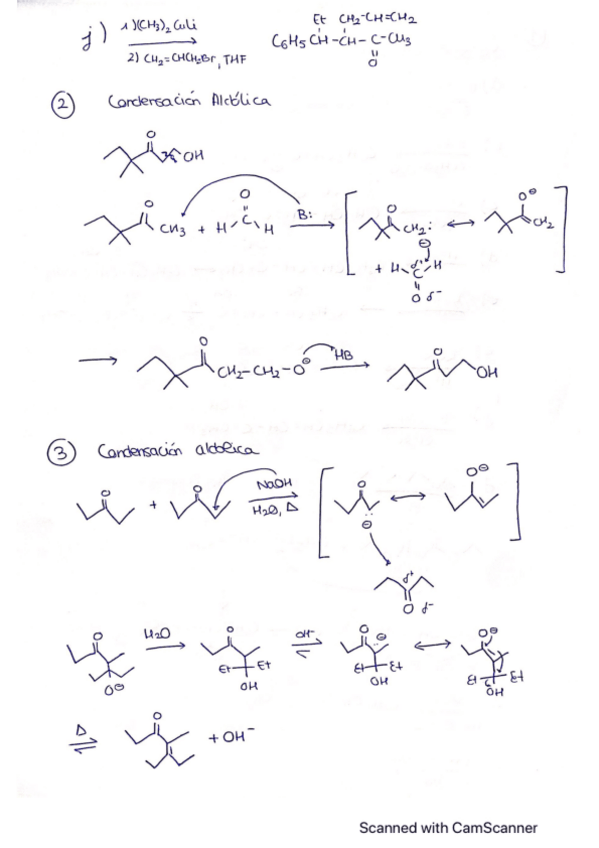 j) 1) (CH3)2 CuLi
2) CH2=CHCH2Br, THF
Et CH2-CH=CH2
C6H5 CH-CH-C-CH3
O
2 Condensación Aldólica
O
OH
O O
CH3 + H C H B:
O O⊖
CH2: ↔ CH2
⊖
+ H C δ+ H
O δ-
O
CH2-CH2-O⊖ HB
O
OH
3 Condensación aldólica
O + O NaOH
H2O, Δ
O ↔ O⊖
⊖
δ+
O δ-
O H2O O OH- O ⊖ ↔ O⊖
O⊖ Et Et Et Et Et Et
OH OH OH
Δ O + OH-
Scanned with CamScanner